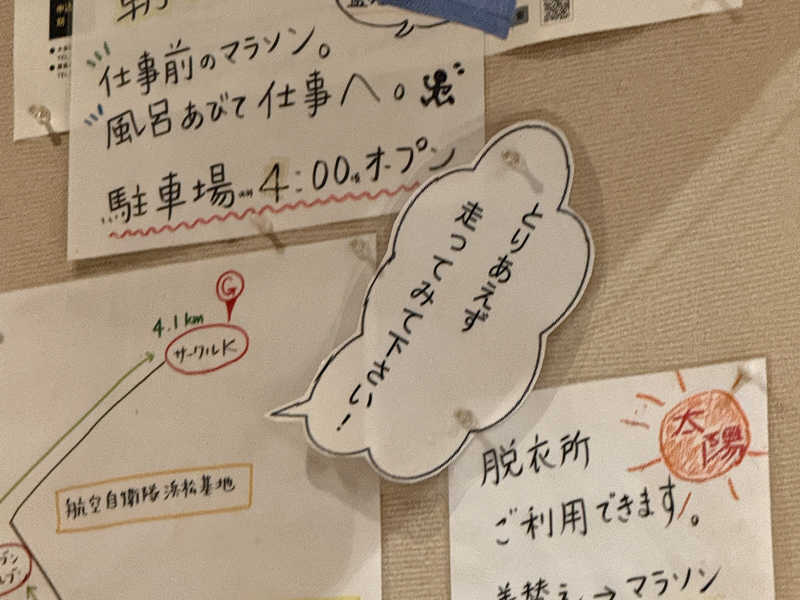 仕事前のマラソン。
風呂あびて仕事へ。
駐車場 4:00 オープン
とりあえず
走ってみて下さい!
G
4.1km
サークルK
航空自衛隊浜松基地
太陽
脱衣所
ご利用できます。
着替え→マラソン